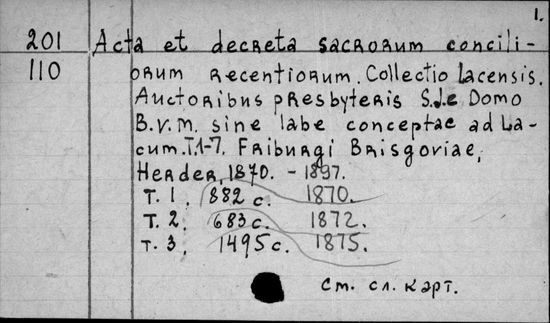 1.
201 Acta et decreta sacrorum concili-
110 orum recentiorum. Collectio Lacensis.
Auctoribus presbyteris S.J.e Domo
B.V.M. sine labe conceptae ad La-
cum. T.1-7. Friburgi Brisgoviae,
Herder, 1870. - 1897.
T. 1, 882 c. 1870.
T. 2, 683 c. 1872.
T. 3, 1495 c. 1875.
См. сл. карт.